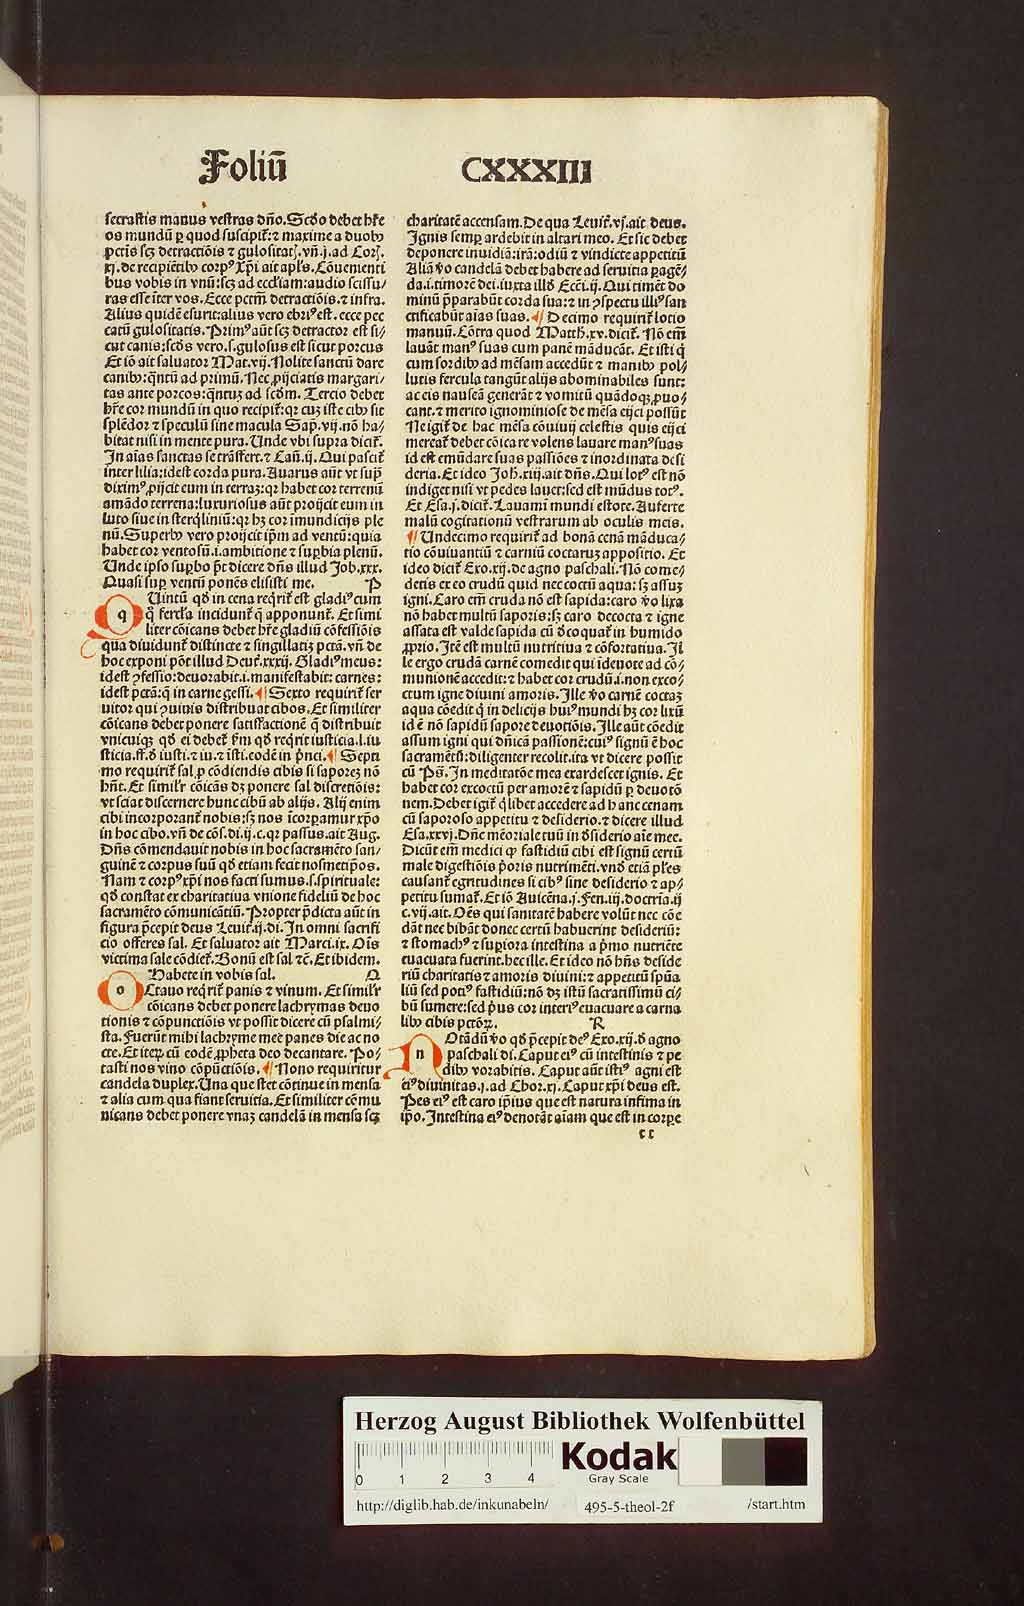 Foliū CXXXIII
secrastis manus vestras dño. Scđo debet hr̄e
os mundū ꝑ quod suscipit̄: ⁊ maxime a duobꝰ
pctīs scꝫ detractiōis ⁊ gulositat̄. vñ .j. ad Cor.
xj. de recipiētibꝰ corpꝰ xp̄i ait apl̄s. Cōuementi
bus vobis in vnū: scꝫ ad eccl̄iam: audio scissu-
ras esse īter vos. Ecce pctm̄ detractiōis. ⁊ infra.
Alius quidē esurit: alius vero ebriꝰ est. ecce pec
catū gulositatis. Primꝰ aūt scꝫ detractor est si-
cut canis: scđs vero .s. gulosus est sicut porcus
Et iō ait saluator Mat. vij. Nolite sanctū dare
canibꝰ: q̄ntū ad primū. Nec ꝓijciatis margari-
tas ante porcos: q̄ntuꝫ ad scđm. Tercio debet
hr̄e cor mundū in quo recipit̄: qr cuꝫ iste cibꝰ sit
splēdor ⁊ speculū sine macula Sap̄. vij. nō ha-
bitat nisi in mente pura. Unde vbi supra dicit̄.
In aīas sanctas se trāsfert. ⁊ Can̄. ij. Qui pascit̄
inter lilia: idest corda pura. Auarus aūt vt sup̄
diximꝰ ꝓijcit eum in terraꝫ: qr habet cor terrenū
amādo terrena: luxuriosus aūt proijcit eum in
luto siue in sterq̄liniū: qr hꝫ cor īmundicijs ple
nū. Superbꝰ vero proijcit ip̄m ad ventū: quia
habet cor ventosū .i. ambitione ⁊ suꝑbia plenū.
Unde ipso suꝑbo p̄t dicere dn̄s illud Job. xxx.
Quasi suꝑ ventū ponēs elisisti me. P
q Uintū qđ in cena req̄rit̄ est gladiꝰ cum
q̊ fercl̄a incidunt̄ q̄ apponunt̄. Et simi
liter cōicans debet hr̄e gladiū cōfessiōis
qua diuidunt̄ distincte ⁊ singillatiꝫ pctā. vñ de
hoc exponi pōt illud Deut̄. xxxij. Gladiꝰ meus:
idest ꝯfessio: deuorabit .i. manifestabit: carnes:
idest pctā: q̄ in carne gessi. ¶ Sexto requirit̄ ser
uitor qui ꝯuiuis distribuat cibos. Et similiter
cōicans debet ponere satisfactionē q̄ distribuit
vnicuiqꝫ qđ ei debet̄ ẜm qđ req̄rit iusticia. l. iu
sticia. ff. đ iusti. ⁊ iu. ⁊ īsti. eodē in pñci. ¶ Septi
mo requirit̄ sal ꝓ cōdiendis cibis si saporeꝫ nō
hñt. Et simil̄r cōicās dꝫ ponere sal discretiōis:
vt sciat discernere hunc cibū ab alijs. Alij enim
cibi incorporant̄ nobis: sꝫ nos īcorꝑamur xp̄o
in hoc cibo. vñ de cōs. di. ij. c. qr passus. ait Aug.
Dn̄s cōmendauit nobis in hoc sacramēto san-
guinē ⁊ corpus suū qđ etiam fecit nosmetip̄os.
Nam ⁊ corpꝰ xp̄i nos facti sumus .s. spirituale:
qđ constat ex charitatiua vnione fideliū de hoc
sacramēto cōmunicātiū. Propter p̄dicta aūt in
figura p̄cepit deus Leuit̄. ij. di. In omni sacrifi
cio offeres sal. Et saluator ait Marci. ix. Ois̄
victima sale cōdiet̄. Bonū est sal ⁊c̄. Et ibidem.
Habete in vobis sal. Q
o Ctauo req̄rit̄ panis ⁊ vinum. Et simil̄r
cōicans debet ponere lachrymas deuo
tionis ⁊ cōpunctiōis vt possit dicere cū psalmi-
sta. Fuerūt mihi lachryme mee panes die ac no
cte. Et iteꝝ cū eodē ꝓpheta deo decantare. Po-
tasti nos vino cōpūctiōis. ¶ Nono requiritur
candela duplex. Una que stet cōtinue in mensa
⁊ alia cum qua fiant seruitia. Et similiter cōmu
nicans debet ponere vnaꝫ candelā in mensa scꝫ
charitatē accensam. De qua Leuit̄. vj. ait deus.
Ignis semꝑ ardebit in altari meo. Et sic debet
deponere inuidiā: irā: odiū ⁊ vindicte appetitū
Aliā ꝟo candelā debet habere ad seruitia ꝑagē-
da .i. timorē dei. iuxta illđ Ecc̄i. ij. Qui timēt do
minū p̄parabūt corda sua: ⁊ in ꝯspectu illiꝰ san
ctificabūt aīas suas. ¶ Decimo requirit̄ lotio
manuū. Cōtra quod Matth. xv. dicit̄. Nō em̄
lauāt manꝰ suas cum panē māducāt. Et isti q̄
cum sordibꝰ ad mēsam accedūt ⁊ manibꝰ pol-
lutis fercula tangūt alijs abominabiles sunt:
ac eis nauseā generāt ⁊ vomitū quādoqꝫ ꝓuo-
cant. ⁊ merito ignominiose de mēsa eijci possūt
Ne igit̄ de hac mēsa cōuiuij celestis quis eijci
mereat̄ debet cōicare volens lauare manꝰ suas
id est emūdare suas passiōes ⁊ inordinata desi
deria. Et ideo Joh̄. xiij. ait dn̄s. Qui lotꝰ est nō
indiget nisi vt pedes lauet: sed est mūdus totꝰ.
Et Esa. j. dicit̄. Lauamī mundi estote. Auferte
malū cogitationū vestrarum ab oculis meis.
¶ Undecimo requirit̄ ad bonā cenā māduca-
tio cōuiuantiū ⁊ carniū coctaruꝫ appositio. Et
ideo dicit̄ Exo. xij. de agno paschali. Nō come-
detis ex eo crudū quid nec coctū aqua: sꝫ assuꝫ
igni. Caro em̄ cruda nō est sapida: caro ꝟo lixa
nō habet multū saporis: sꝫ caro decocta ⁊ igne
assata est valde sapida cū đcoquat̄ in humido
ꝓprio. Itē est multū nutritiua ⁊ cōfortatiua. Il
le ergo crudā carnē comedit qui īdeuote ad cō-
munionē accedit: ⁊ habet cor crudū .i. non exco-
ctum igne diuini amoris. Ille ꝟo carnē coctaꝫ
aqua cōedit q̄ in delicijs huiꝰ mundi hꝫ cor lixū
id ē nō sapidū sapore deuotiōis. Ille aūt cōedit
assum igni qui dn̄icā passionē: cuiꝰ signū ē hoc
sacramētū: diligenter recolit. ita vt dicere possit
cū Ps̄. In meditatōe mea exardescet ignis. Et
habet cor excoctū per amorē ⁊ sapidū ꝑ deuotō
nem. Debet igit̄ q̄libet accedere ad hanc cenam
cū saporoso appetitu ⁊ desiderio. ⁊ dicere illud
Esa. xxvj. Dn̄e mēoriale tuū in đsiderio aīe mee.
Dicūt em̄ medici ꝙ fastidiū cibi est signū certū
male digestiōis p̄oris nutrimēti. vnđ etiā pl̄es
causant̄ egritudines si cibꝰ sine desiderio ⁊ ap-
petitu sumat̄. Et iō Auicēna .j. Fen. iij. doctrīa. ij
c. vij. ait. Oēs qui sanitatē habere volūt nec cōe
dāt nec bibāt donec certū habuerint desideriū:
⁊ stomachꝰ ⁊ suꝑiora intestina a p̄mo nutriēte
euacuata fuerint. hec ille. Et ideo nō hn̄s deside
riū charitatis ⁊ amoris diuini: ⁊ appetitū spūa
liū sed potiꝰ fastidiū: nō dꝫ istū sacratissimū ci-
bū sumere: sed p̄us cor interiꝰ euacuare a carna
libꝰ cibis pctōꝝ. R
n Otādū ꝟo qđ p̄cepit deꝰ Exo. xij. đ agno
paschali di. Caput eiꝰ cū intestinis ⁊ pe
dibꝰ vorabitis. Caput aūt istiꝰ agni est
eiꝰ diuinitas .j. ad Chor. xj. Caput xp̄i deus est.
Pes eiꝰ est caro ip̄ius que est natura infima in
ip̄o. Intestina eiꝰ denotāt aīam que est in corꝑe
cc
Herzog August Bibliothek Wolfenbüttel
0 1 2 3 4
Kodak
Gray Scale
http://diglib.hab.de/inkunabeln/ 495-5-theol-2f /start.htm